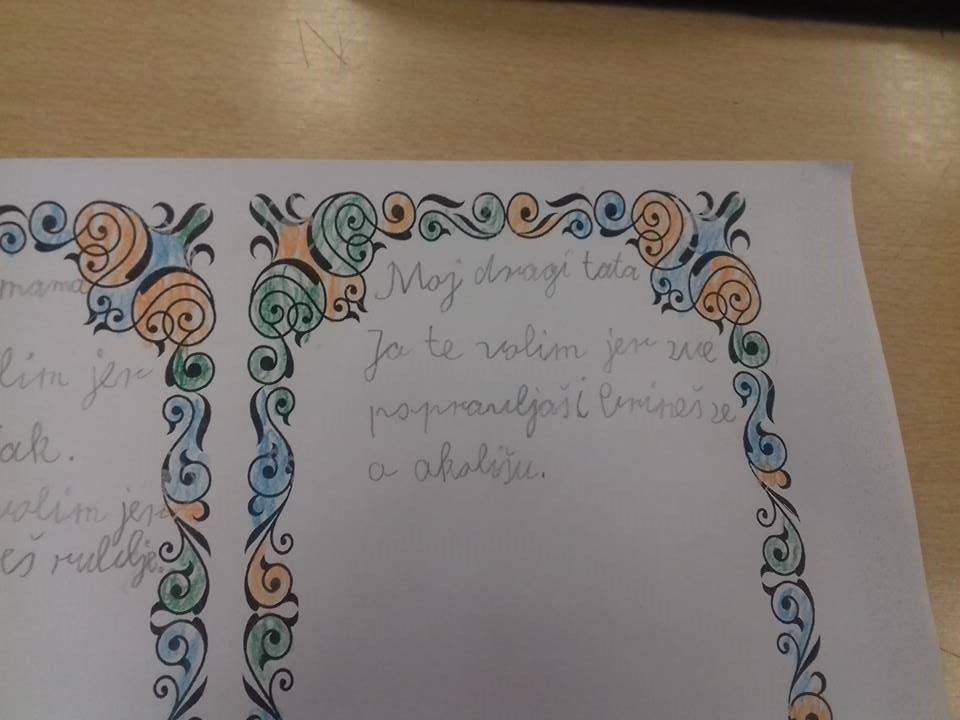 mama
lim jer
ak.
volim jer
eš
Moj dragi tata
Ja te volim jer sve
popravljaš i brineš se
o okolišu.